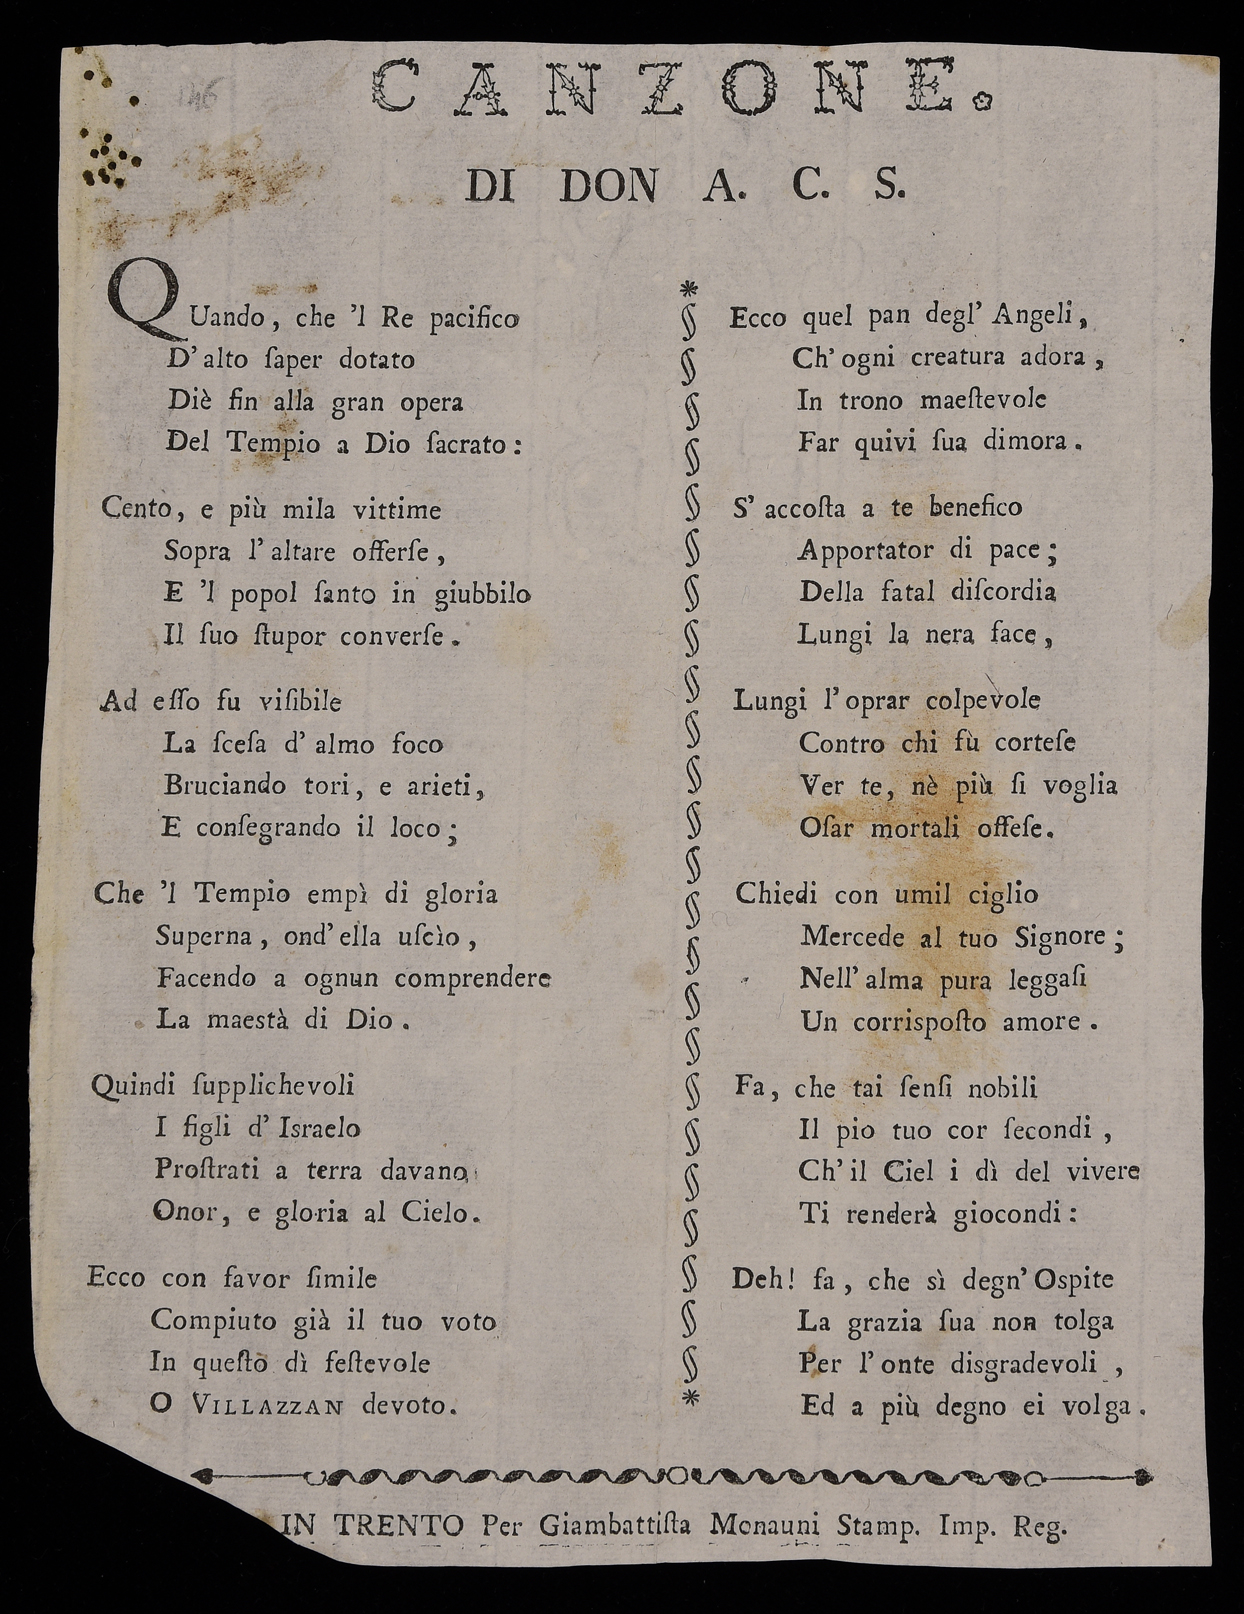 146
CANZONE.
DI DON A. C. S.
QUando, che 'l Re pacifico
D'alto ſaper dotato
Diè fin alla gran opera
Del Tempio a Dio ſacrato:
Cento, e più mila vittime
Sopra l'altare offerſe,
E 'l popol ſanto in giubbilo
Il ſuo ſtupor converſe.
Ad eſſo fu viſibile
La ſceſa d'almo foco
Bruciando tori, e arieti,
E conſegrando il loco;
Che 'l Tempio empì di gloria
Superna, ond'ella uſcìo,
Facendo a ognun comprendere
La maestà di Dio.
Quindi ſupplichevoli
I figli d'Israelo
Proſtrati a terra davano
Onor, e gloria al Cielo.
Ecco con favor ſimile
Compiuto già il tuo voto
In queſto dì feſtevole
O VILLAZZAN devoto.
Ecco quel pan degl'Angeli,
Ch'ogni creatura adora,
In trono maeſtevole
Far quivi ſua dimora.
S'accoſta a te benefico
Apportator di pace;
Della fatal diſcordia
Lungi la nera face,
Lungi l'oprar colpevole
Contro chi fù corteſe
Ver te, nè più ſi voglia
Oſar mortali offeſe.
Chiedi con umil ciglio
Mercede al tuo Signore;
Nell'alma pura leggaſi
Un corrispoſto amore.
Fa, che tai ſenſi nobili
Il pio tuo cor ſecondi,
Ch'il Ciel i dì del vivere
Ti renderà giocondi:
Deh! fa, che sì degn'Ospite
La grazia ſua non tolga
Per l'onte disgradevoli,
Ed a più degno ei volga.
IN TRENTO Per Giambattiſta Monauni Stamp. Imp. Reg.